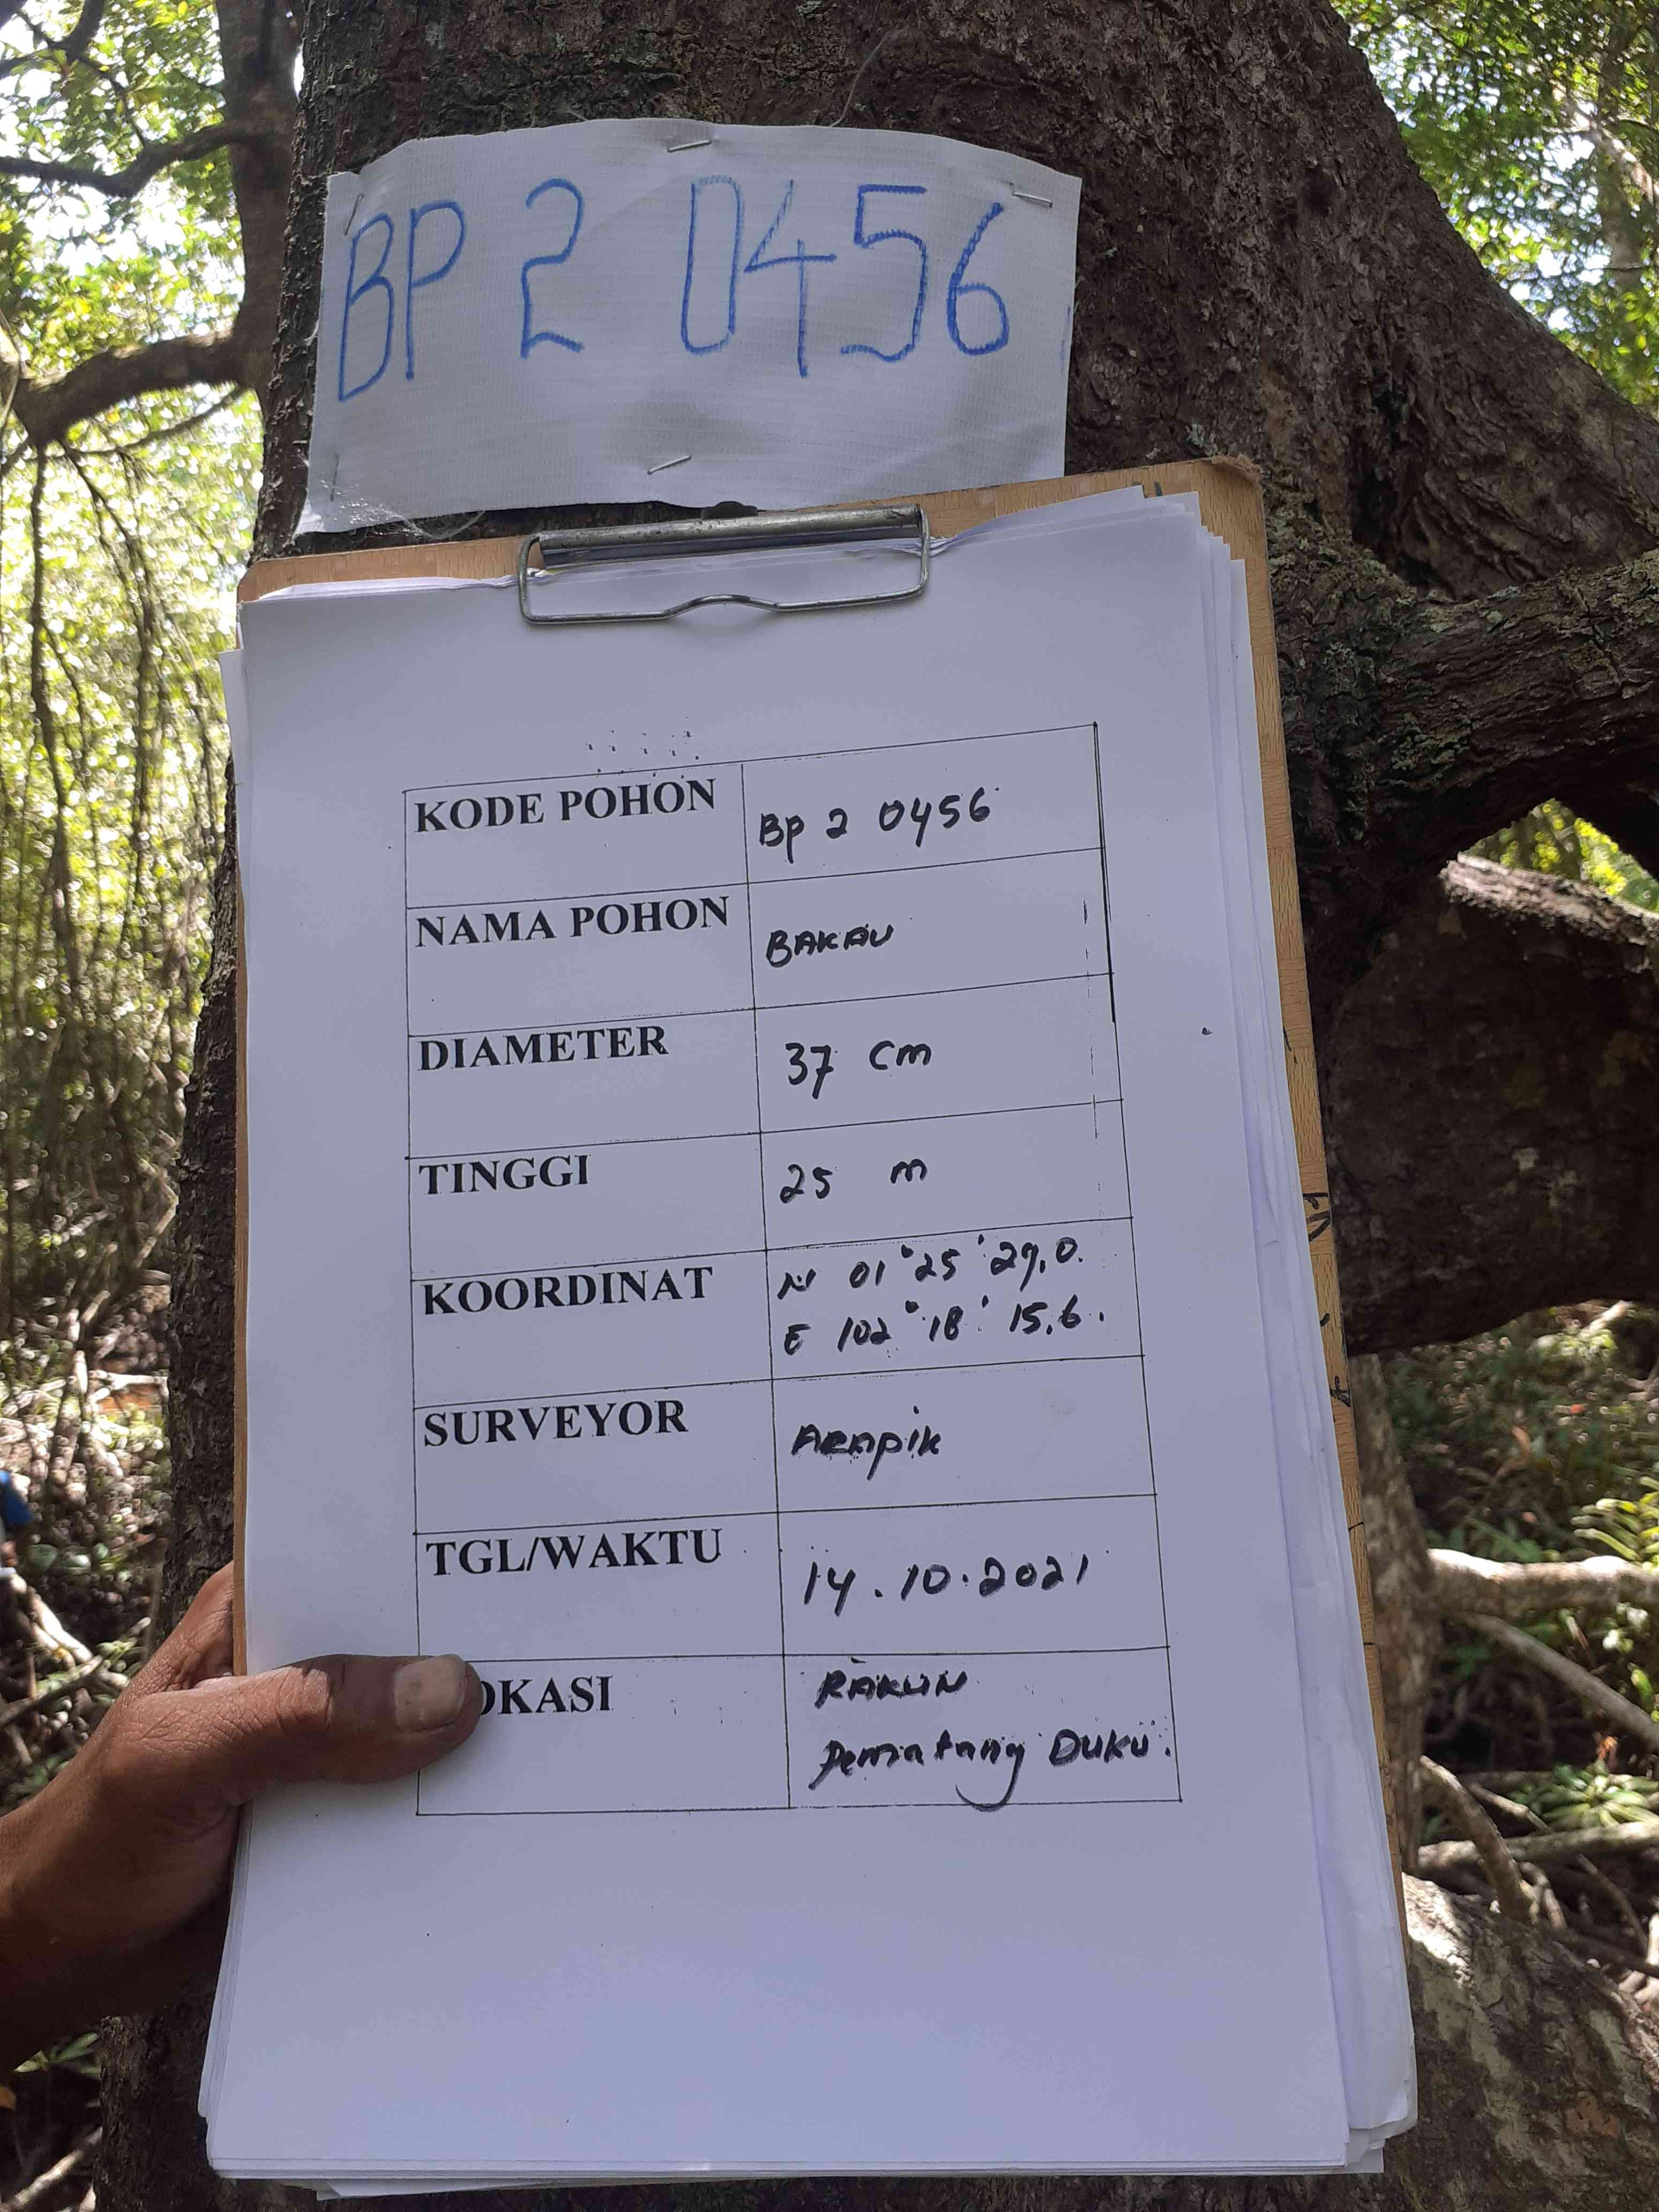 BP 2 0456
KODE POHON Bp 2 0456
NAMA POHON BAKAU
DIAMETER 37 cm
TINGGI 25 m
KOORDINAT N 01° 25' 29,0.
E 102° 18' 15,6.
SURVEYOR Arapik
TGL/WAKTU 14.10.2021
OKASI RAKUN
Pematang Duku.